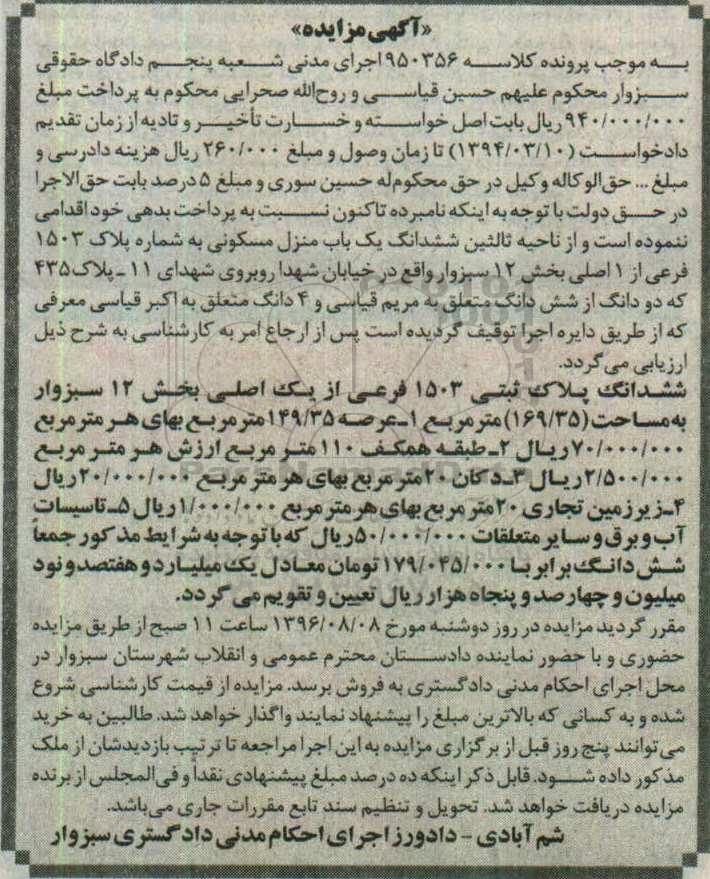 «آگهی مزایده»
به موجب پرونده کلاسه ۹۵۰۳۵۶ اجرای مدنی شعبه پنجم دادگاه حقوقی
سبزوار محکوم علیهم حسین قیاسی و روح‌الله صحرایی محکوم به پرداخت مبلغ
۹۴۰/۰۰۰/۰۰۰ ریال بابت اصل خواسته و خسارت تأخیر و تادیه از زمان تقدیم
دادخواست (۱۳۹۴/۰۳/۱۰) تا زمان وصول و مبلغ ۲۶۰/۰۰۰ ریال هزینه دادرسی و
مبلغ ... حق‌الوکاله وکیل در حق محکوم‌له حسین سوری و مبلغ ۵ درصد بابت حق‌الاجرا
در حق دولت با توجه به اینکه نامبرده تاکنون نسبت به پرداخت بدهی خود اقدامی
ننموده است و از ناحیه ثالثین ششدانگ یک باب منزل مسکونی به شماره پلاک ۱۵۰۳
فرعی از ۱ اصلی بخش ۱۲ سبزوار واقع در خیابان شهدا روبروی شهدای ۱۱ ـ پلاک ۴۳۵
که دو دانگ از شش دانگ متعلق به مریم قیاسی و ۴ دانگ متعلق به اکبر قیاسی معرفی
که از طریق دایره اجرا توقیف گردیده است پس از ارجاع امر به کارشناسی به شرح ذیل
ارزیابی می‌گردد.
ششدانگ پلاک ثبتی ۱۵۰۳ فرعی از یک اصلی بخش ۱۲ سبزوار
به مساحت (۱۶۹/۳۵) مترمربع ۱ـ عرصه ۱۴۹/۳۵ مترمربع بهای هر مترمربع
۷۰/۰۰۰/۰۰۰ ریال ۲ـ طبقه همکف ۱۱۰ متر مربع ارزش هر متر مربع
۲/۵۰۰/۰۰۰ ریال ۳ـ دکان ۲۰ متر مربع بهای هر متر مربع ۲۰/۰۰۰/۰۰۰ ریال
۴ـ زیرزمین تجاری ۲۰ متر مربع بهای هر متر مربع ۱/۰۰۰/۰۰۰ ریال ۵ـ تاسیسات
آب و برق و سایر متعلقات ۵۰/۰۰۰/۰۰۰ ریال که با توجه به شرایط مذکور جمعاً
شش دانگ برابر با ۱۷۹/۰۴۵/۰۰۰ تومان معادل یک میلیارد و هفتصد و نود
میلیون و چهارصد و پنجاه هزار ریال تعیین و تقویم می گردد.
مقرر گردید مزایده در روز دوشنبه مورخ ۱۳۹۶/۰۸/۰۸ ساعت ۱۱ صبح از طریق مزایده
حضوری و با حضور نماینده دادستان محترم عمومی و انقلاب شهرستان سبزوار در
محل اجرای احکام مدنی دادگستری به فروش برسد. مزایده از قیمت کارشناسی شروع
شده و به کسانی که بالاترین مبلغ را پیشنهاد نمایند واگذار خواهد شد. طالبین به خرید
می‌توانند پنج روز قبل از برگزاری مزایده به این اجرا مراجعه تا ترتیب بازدیدشان از ملک
مذکور داده شود. قابل ذکر اینکه ده درصد مبلغ پیشنهادی نقداً و فی‌المجلس از برنده
مزایده دریافت خواهد شد. تحویل و تنظیم سند تابع مقررات جاری می‌باشد.
شم آبادی - دادورز اجرای احکام مدنی دادگستری سبزوار
ParsNamadData